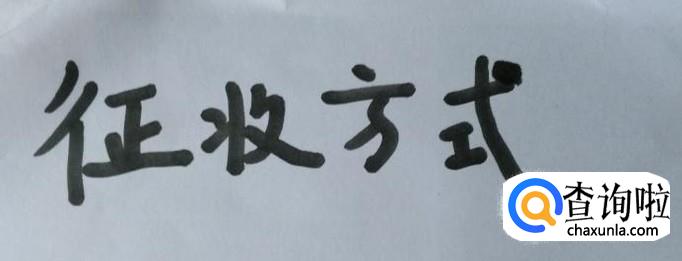 征收方式
查询啦
chaxunla.com